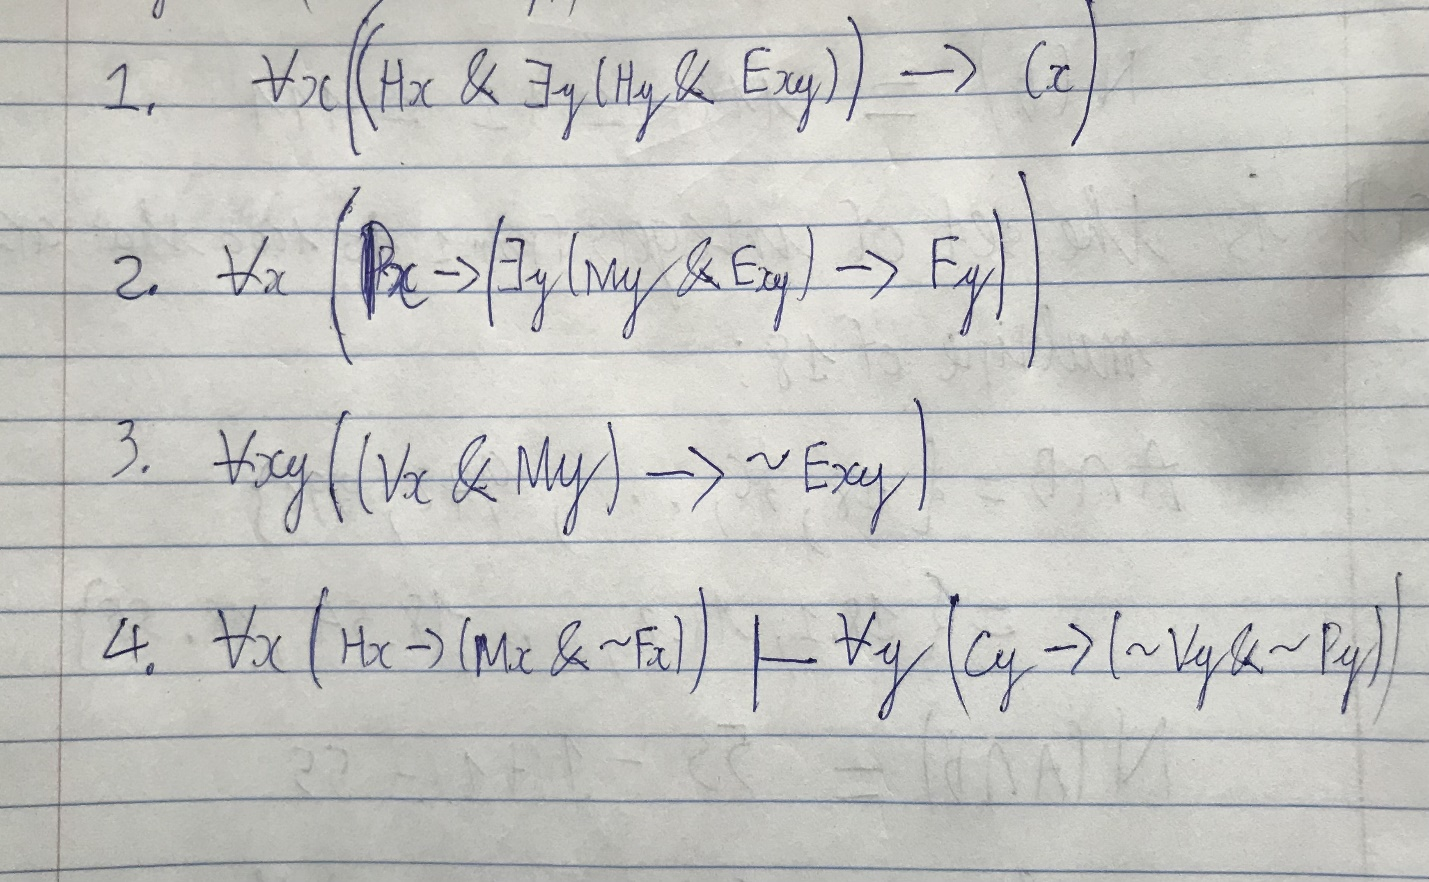 1. ∀x((Hx & ∃y(Hy & Exy)) → Cx)
2. ∀x(Px → (∃y(My & Exy) → Fy))
3. ∀xy((Vx & My) → ~Exy)
4. ∀x(Hx → (Mx & ~Fx)) ⊢ ∀y(Cy → (~Vy & ~Py))